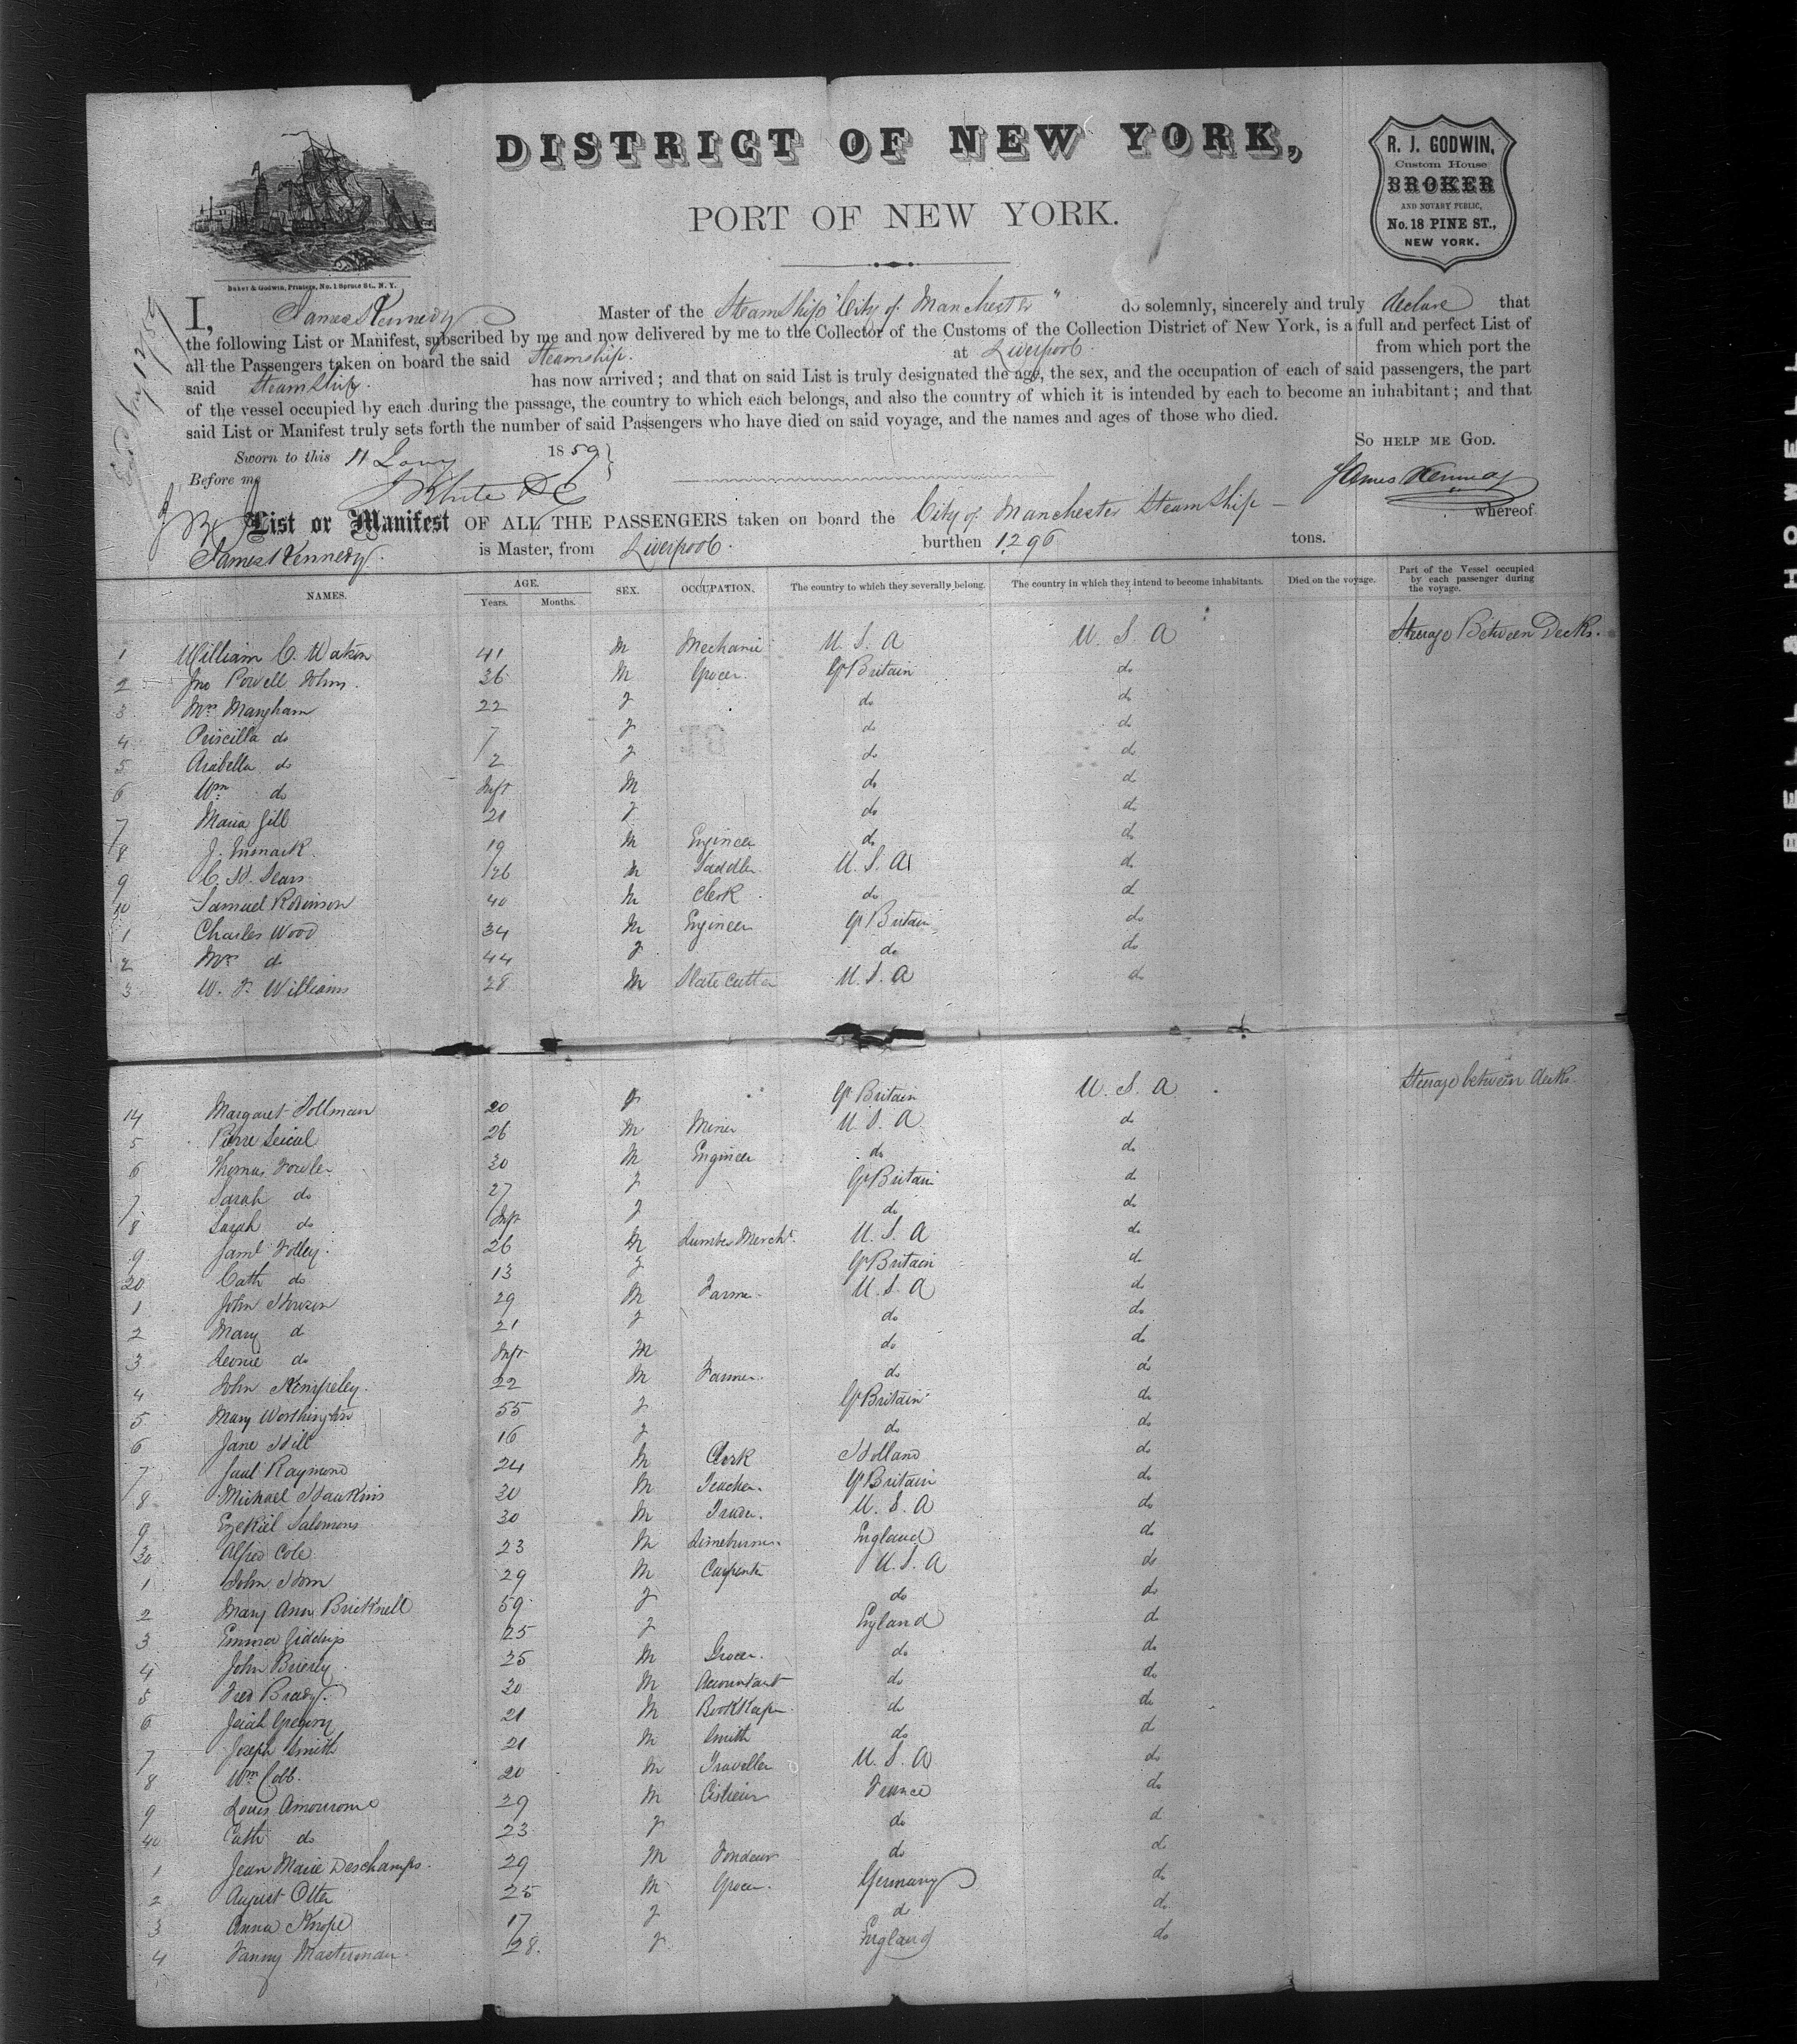 DISTRICT OF NEW YORK,
PORT OF NEW YORK.
R. J. GODWIN,
Custom House
BROKER
AND NOTARY PUBLIC,
No. 18 PINE ST.,
NEW YORK.
Baker & Godwin, Printers, No. 1 Spruce St., N. Y.
I, James Kennedy Master of the SteamShip "City of Manchester" do solemnly, sincerely and truly declare that
the following List or Manifest, subscribed by me and now delivered by me to the Collector of the Customs of the Collection District of New York, is a full and perfect List of
all the Passengers taken on board the said Steamship. at Liverpool. from which port the
said SteamShip. has now arrived; and that on said List is truly designated the age, the sex, and the occupation of each of said passengers, the part
of the vessel occupied by each during the passage, the country to which each belongs, and also the country of which it is intended by each to become an inhabitant; and that
said List or Manifest truly sets forth the number of said Passengers who have died on said voyage, and the names and ages of those who died.
Sworn to this 11 Jany 1859 SO HELP ME GOD.
Before me James Kennedy
List or Manifest OF ALL THE PASSENGERS taken on board the City of Manchester SteamShip whereof
James Kennedy is Master, from Liverpool. burthen 1296 tons.
NAMES. AGE. Years. Months. SEX. OCCUPATION. The country to which they severally belong. The country in which they intend to become inhabitants. Died on the voyage. Part of the Vessel occupied by each passenger during the voyage.
1 William C. 41 M Mechanic U. S. A U. S. A Steerage Between Decks.
2 Jno Powell Johns. 36 M Grocer. Gt Britain do
3 Mrs Mangham 22 F do do
4 Priscilla do 7 F do do
5 Arabella do 2 F do do
6 Wm do Inft M do do
7 Maria Gill 21 F do do
8 J. 19 M Engineer do do
9 C. H. Sears 26 M Saddler U. S. A do
10 Samuel Robinson 40 M Clerk do d
1 Charles Wood 34 M Engineer Gt Britain do
2 Mrs do 44 F do do
3 W. F. Williams 28 M Slate Cutter U. S. A do
14 Margaret Tollman 20 F Gt Britain U. S. A Steerage between decks.
5 Pierre 26 M Miner U. S. A do
6 Thomas Fowler 30 M Engineer do do
7 Sarah do 27 F Gt Britain do
8 Sarah do Inft F do do
9 Saml Folley. 26 M Lumber Mercht. U. S. A do
20 Cath do 13 F Gt Britain do
1 John Howson 29 M Farmer U. S. A do
2 Mary d 21 F do do
3 do Inft M do do
4 John Kempeley. 22 M Farmer. do do
5 Mary Worthington 55 F Gt Britain do
6 Jane Hill 16 F do do
7 Raymond 24 M Clerk Holland do
8 Michael Hawkins 30 M Teacher. Gt Britain do
9 Ezekiel Salomons 30 M Trader. U. S. A do
30 Alfred Cole 23 M Limeburner. England do
1 John Horn 29 M Carpenter U. S. A do
2 Mary Ann Bricknell 59 F do do
3 Emma Giddings 25 F England do
4 John Brierly 25 M Grocer. do do
5 Fred Brady. 30 M Accountant do do
6 Gregory 21 M BookKeeper do do
7 Joseph Smith 21 M Smith do d
8 Wm Cobb. 20 M Traveller U. S. A do
9 Louis 29 M France do
40 Cath do 23 F do d
1 Jean Marie Deschamps. 29 M Fondeur do d
2 August Otter 25 M Grocer. Germany do
3 Anna Knope 17 F do do
4 Fanny Masterman 28. F England do
BELL & HOWELL